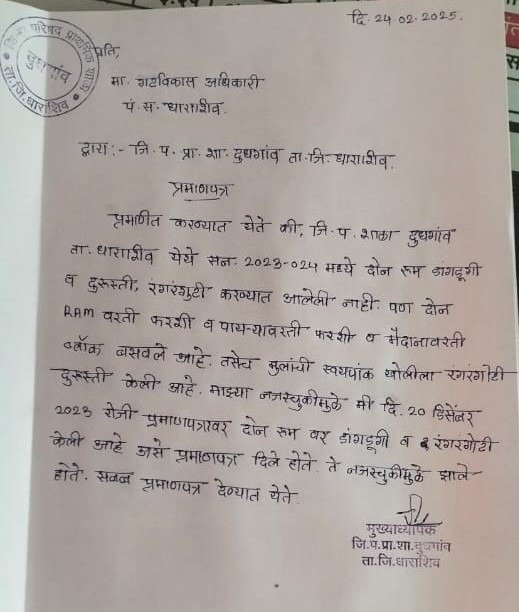 दि. 24.02.2025.
जि. प. परिषद प्राथमिक शाळा
दुधगांव
ता.जि.धाराशिव
प्रति,
मा. गटविकास अधिकारी
पं. स. धाराशीव.
द्वारा :- जि. प. प्रा. शा. दुधगांव ता. जि. धाराशीव.
प्रमाणपत्र
प्रमाणीत करण्यात येते की, जि. प. शाळा दुधगांव
ता. धाराशीव येथे सन. 2023-024 मध्ये दोन रूम डागडूगी
व दुरूस्ती, रंगरंगुटी करण्यात आलेली नाही. पण दोन
RAM वरती फरशी व पायऱ्यावरती फरशी व मैदानावरती
ब्लॉक बसवले आहे. तसेच मुलांची स्वयपांक खोलीला रंगरगोटी
दुरूस्ती केली आहे. माझ्या नजरचुकीमुळे मी दि. 20 डिसेंबर
2023 रोजी प्रमाणपत्रावर दोन रूम वर डांगडूगी व रंगरगोटी
केली आहे असे प्रमाणपत्र दिले होते. ते नजरचुकीमुळे झाले
होते. सबब प्रमाणपत्र देण्यात येते.
मुख्याध्यापक
जि.प.प्रा.शा.दुधगांव
ता.जि.धाराशिव